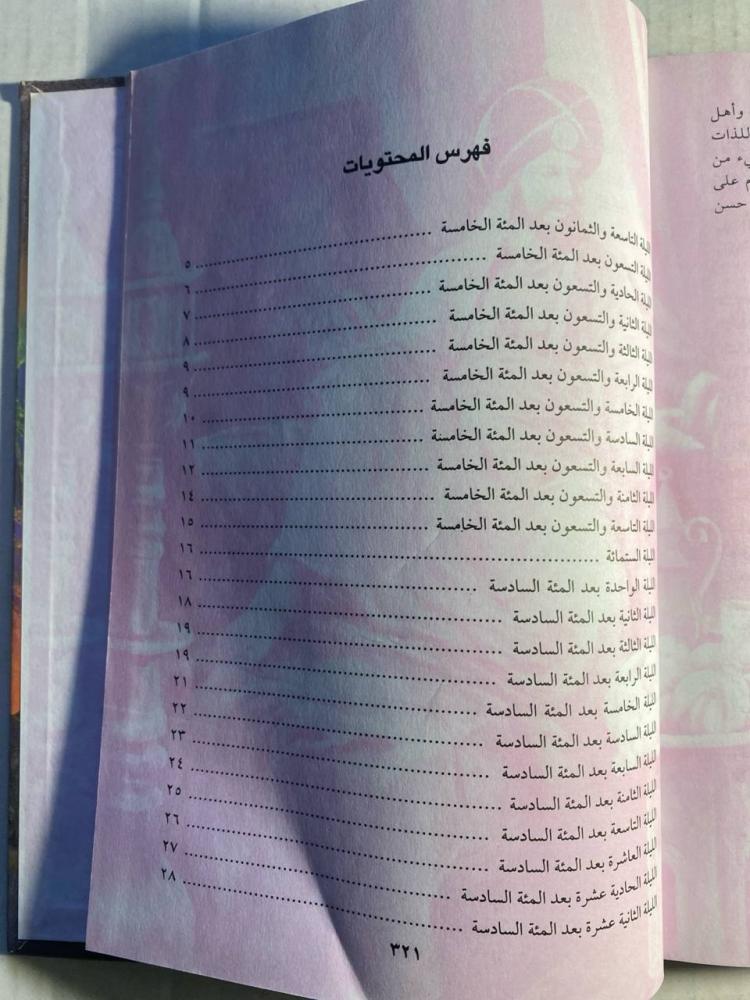 فهرس المحتويات
الليلة التاسعة والثمانون بعد المئة الخامسة .......... ٥
الليلة التسعون بعد المئة الخامسة .......... ٦
الليلة الحادية والتسعون بعد المئة الخامسة .......... ٧
الليلة الثانية والتسعون بعد المئة الخامسة .......... ٨
الليلة الثالثة والتسعون بعد المئة الخامسة .......... ٩
الليلة الرابعة والتسعون بعد المئة الخامسة .......... ٩
الليلة الخامسة والتسعون بعد المئة الخامسة .......... ١٠
الليلة السادسة والتسعون بعد المئة الخامسة .......... ١١
الليلة السابعة والتسعون بعد المئة الخامسة .......... ١٢
الليلة الثامنة والتسعون بعد المئة الخامسة .......... ١٤
الليلة التاسعة والتسعون بعد المئة الخامسة .......... ١٥
الليلة الستمائة .......... ١٦
الليلة الواحدة بعد المئة السادسة .......... ١٦
الليلة الثانية بعد المئة السادسة .......... ١٨
الليلة الثالثة بعد المئة السادسة .......... ١٩
الليلة الرابعة بعد المئة السادسة .......... ١٩
الليلة الخامسة بعد المئة السادسة .......... ٢١
الليلة السادسة بعد المئة السادسة .......... ٢٢
الليلة السابعة بعد المئة السادسة .......... ٢٣
الليلة الثامنة بعد المئة السادسة .......... ٢٤
الليلة التاسعة بعد المئة السادسة .......... ٢٥
الليلة العاشرة بعد المئة السادسة .......... ٢٦
الليلة الحادية عشرة بعد المئة السادسة .......... ٢٧
الليلة الثانية عشرة بعد المئة السادسة .......... ٢٨
٣٢١
وأهل
للذات
من
على
حسن